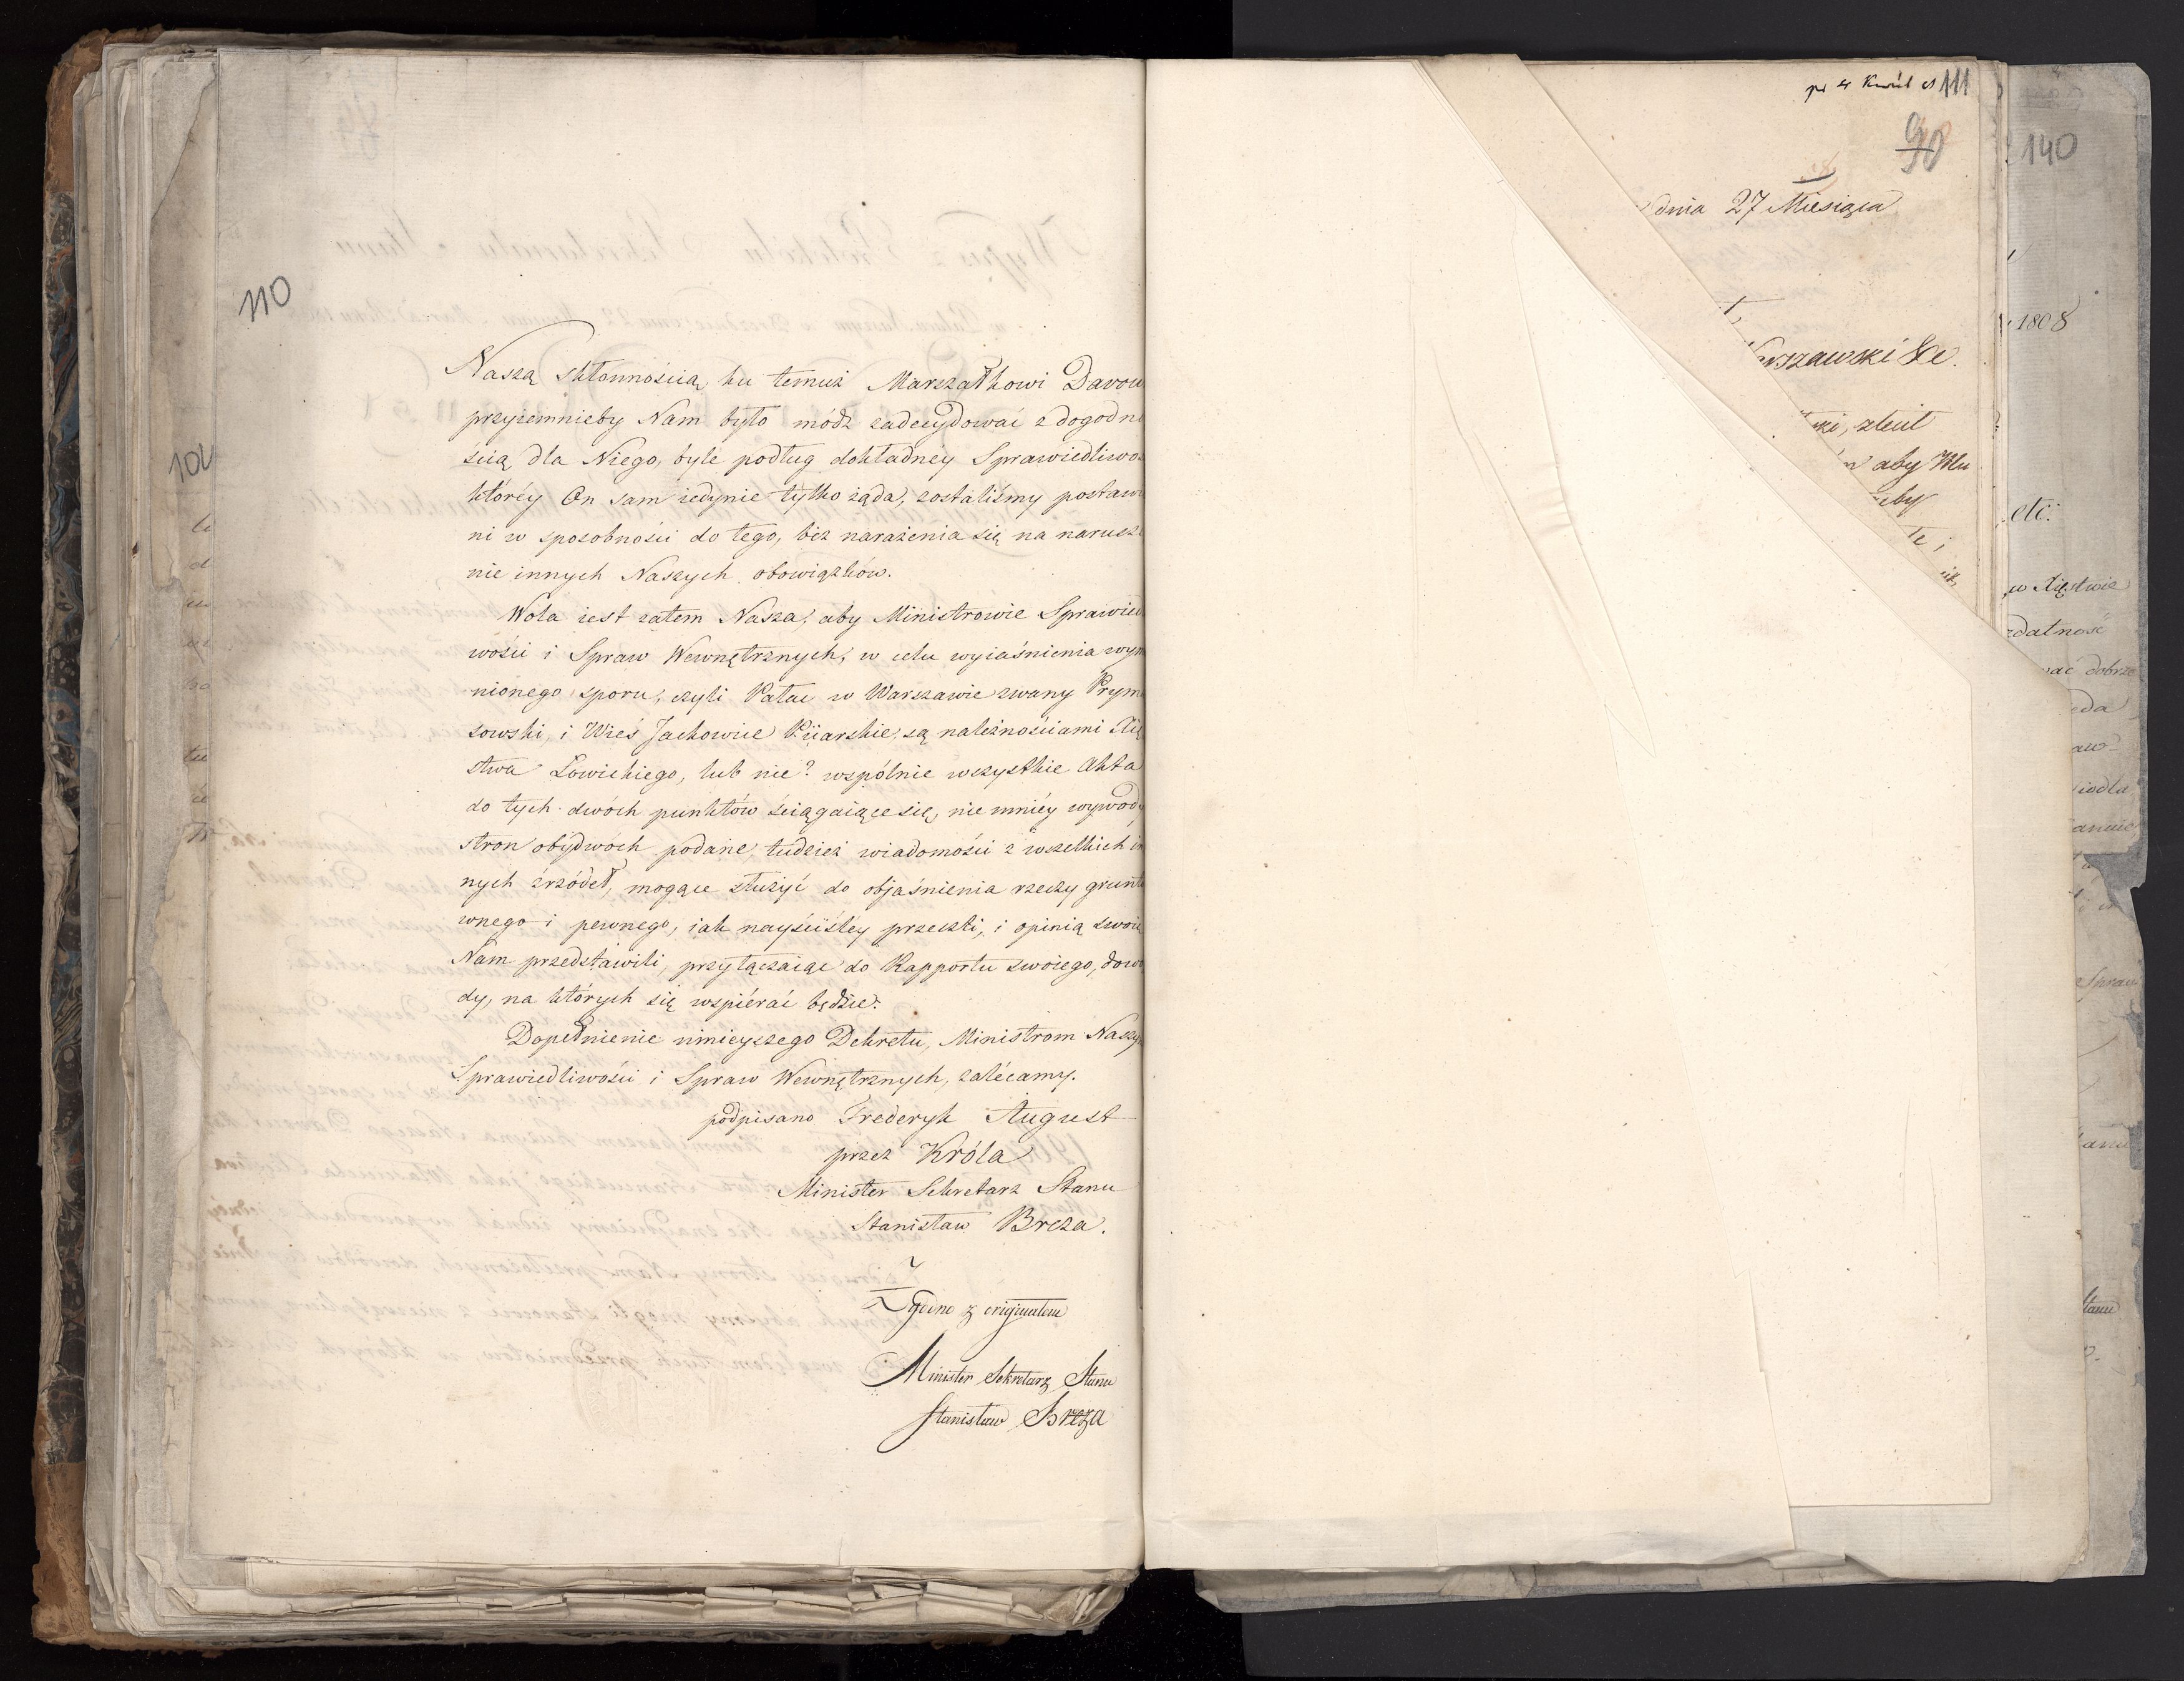 110
Naszą skłonnością ku temuż Marszałkowi Davou
przyiemnieby Nam było módz zadecydować z dogodno
ścią dla Niego, byle podług dokładnéy Sprawiedliwoś
któréy On sam iedynie tylko żąda, zostaliśmy postawi
ni w sposobności do tego, bez narażenia się na narusze
nie innych Naszych obowiązków.
Wola iest zatem Nasza, aby Ministrowie Sprawied
wości i Spraw Wewnętrznych, w celu wyiaśnienia wym
nionego sporu, czyli Pałac w Warszawie zwany Pryma
sowski, i Wieś Jachowice Piiarskie, są należnościami Xię
stwa Łowickiego, lub nie? wspólnie wszystkie Akta
do tych dwóch punktów ściągaiące się, nie mniéy wywody
stron obydwóch podane, tudzież wiadomości z wszelkich in
nych źrzódeł, mogące służyć do objaśnienia rzeczy grunto
wnego i pewnego, iak nayściśléy przeszli, i opinią swoię
Nam przedstawili, przyłączaiąc do Rapportu swoiego, dowo
dy, na których się wspiérać będzie.
Dopełnienie ninieyszego Dekretu, Ministrom Naszy
Sprawiedliwości i Spraw Wewnętrznych, zalécamy.
podpisano Frederyk August
przez Króla
Minister Sekretarz Stanu
Stanisław Breza.
Zgodno z originałem
Minister Sekretarz Stanu
Stanisław Breza
111
90
dnia 27 Miesiąca
rszawski &c.
aby
140
1808
etc:
w Xięstwie
zdatność
dobrze
Spraw